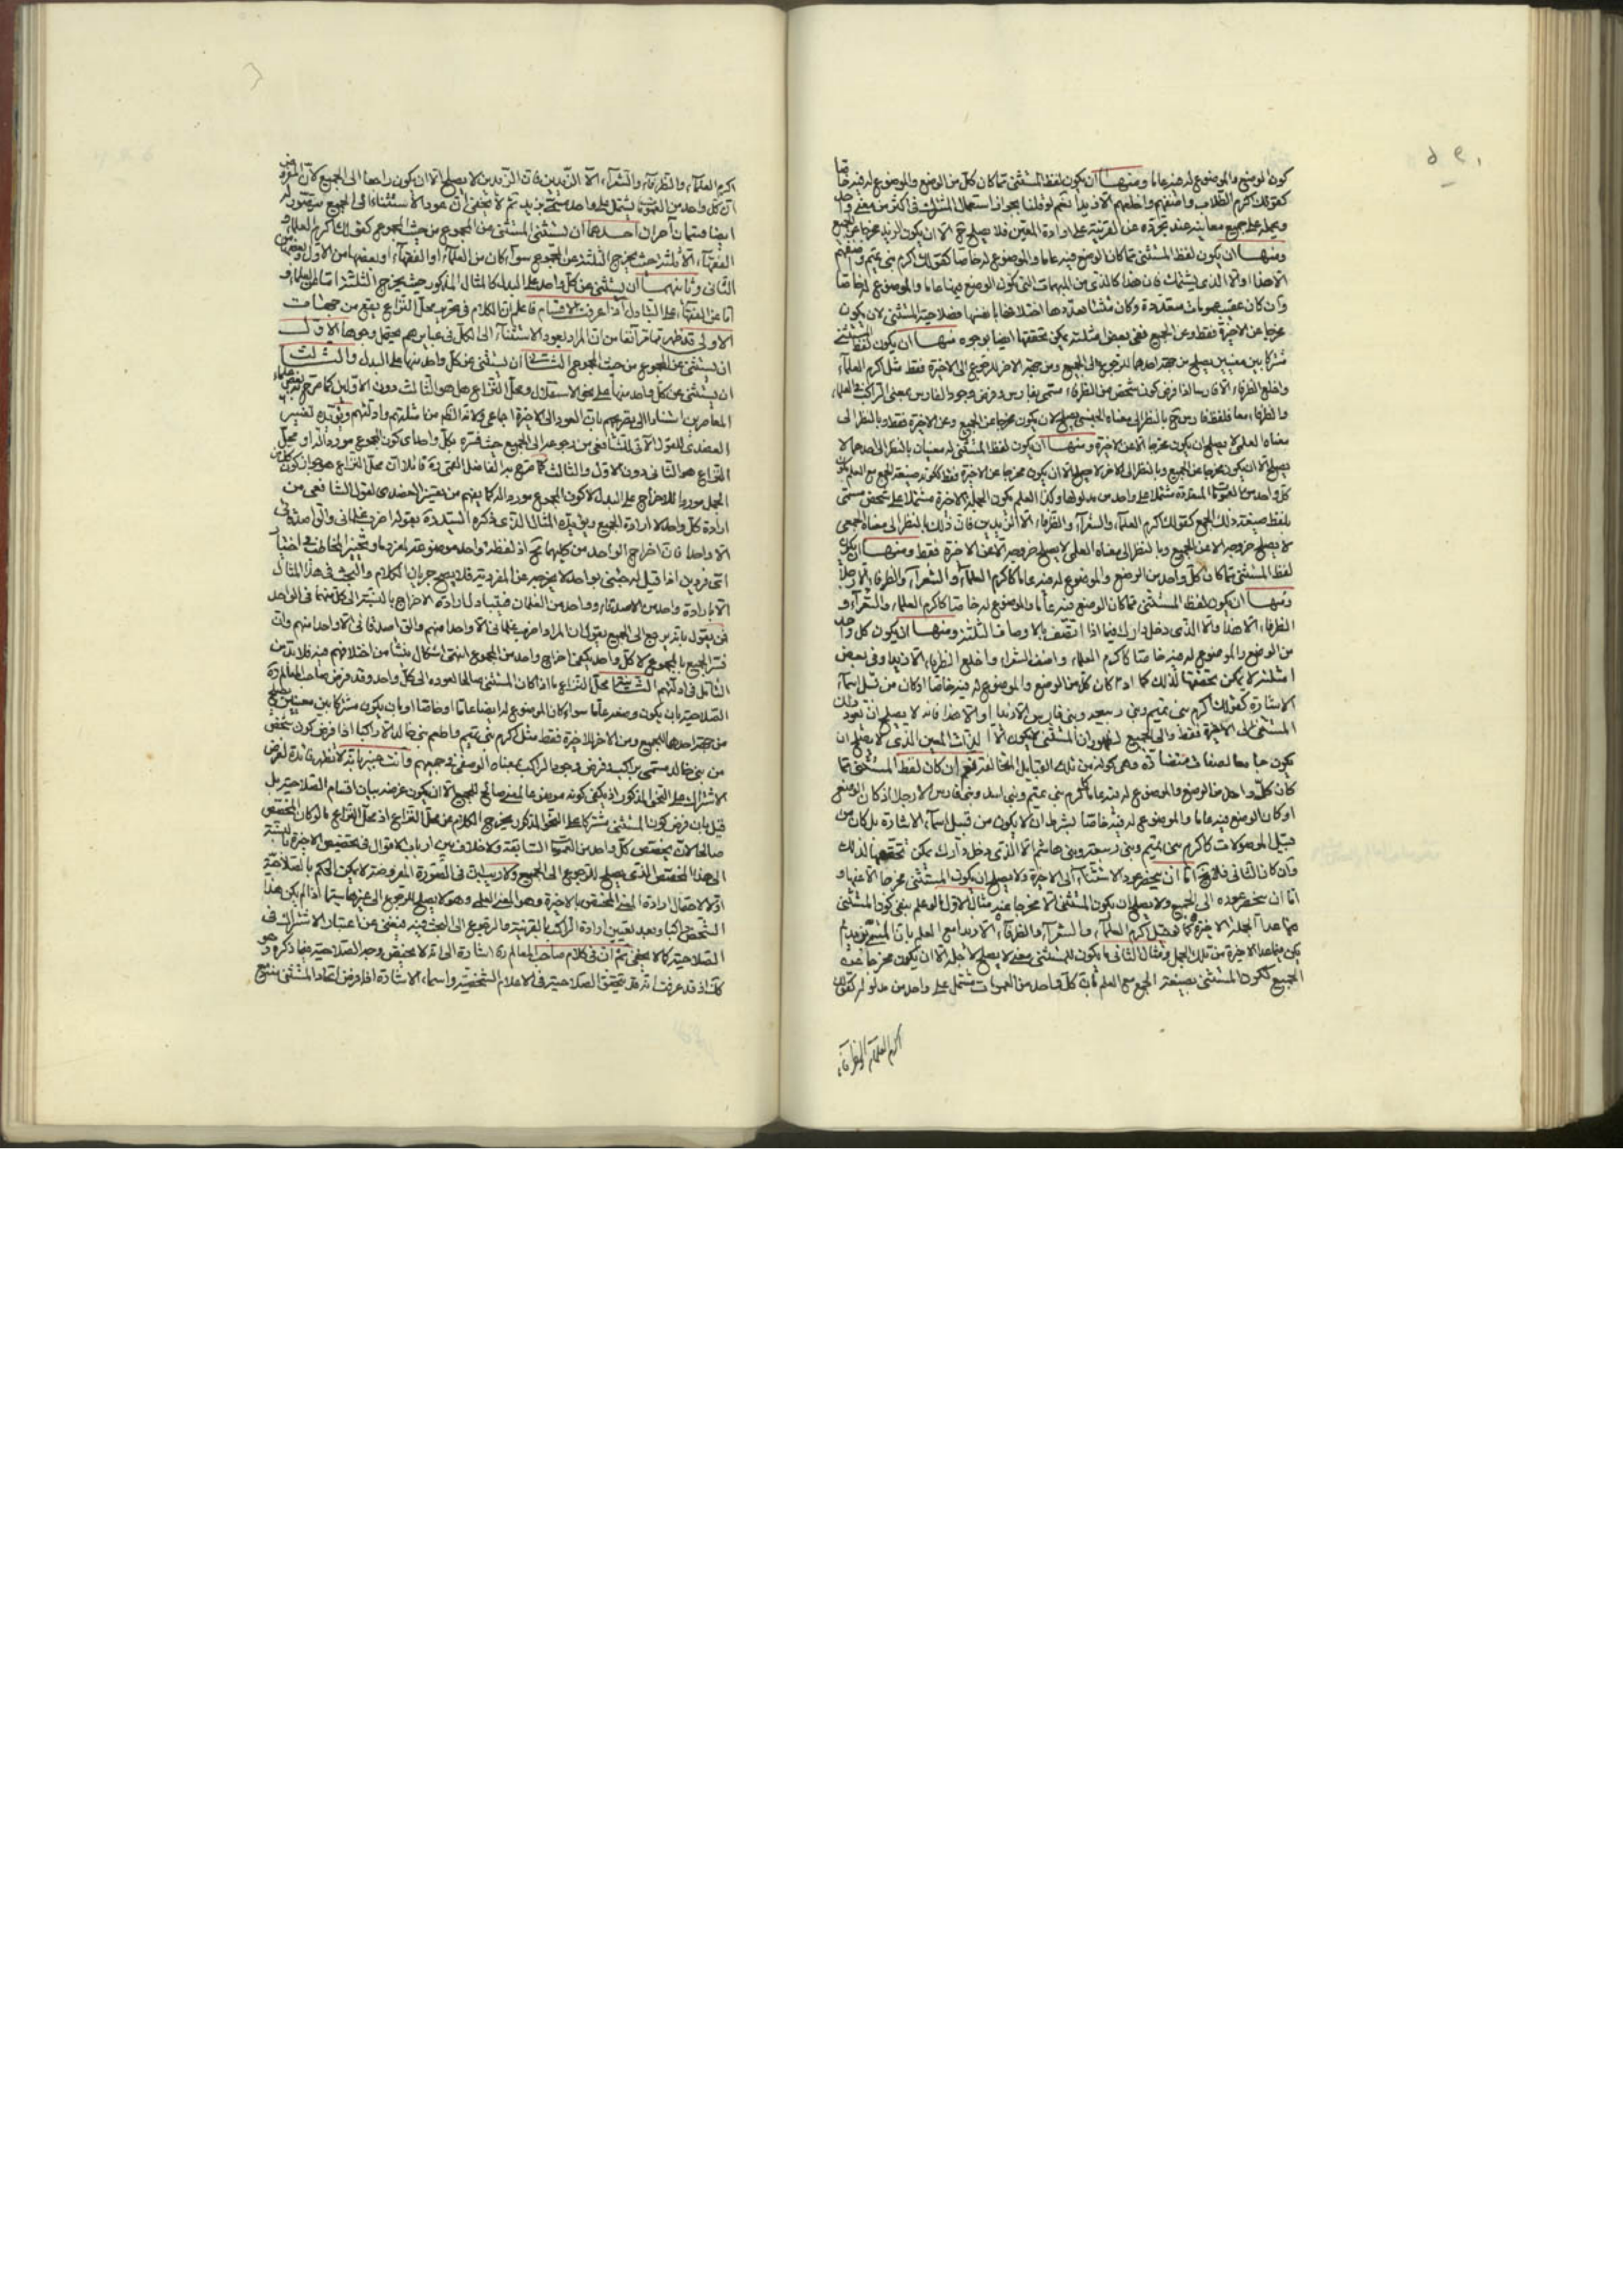 كون الوضع والموضوع له فيه عاما ومنها ان يكون لفظ المستثنى مما كان كل من الوضع والموضوع له فيه خاصا
كقولك اكرم الطلاب واضفهم واخلعهم الا زيدا نعم لو قلنا بجواز استعمال المشترك في اكثر من معنى واحد
ويحمله على جميع معانيه عند تجرده عن القرينة على ارادة المعين فلا يصلح ح الا ان يكون الزيد مخرجا عن الجميع
ومنها ان يكون لفظ المستثنى مما كان الوضع فيه عاما والموضوع له خاصا كقولك اكرم بني تميم واضفهم
الا هذا او الا الذي يشتمك فان هذا كالذي من المبهمات التي يكون الوضع فيها عاما والموضوع له خاصا
وان كان عقيب عمومات متعددة وكان منشأ تعددها اختلافها بانفسها فصلاحية المستثنى لان يكون
مخرجا عن الاخيرة فقط وعن الجميع ففي بعض امثلته يمكن تحققها ايضا بوجوه منها ان يكون لفظ المستثنى
مشتركا بين معنيين يصلح من جهة احدهما للرجوع الى الجميع ومن جهة الاخر للرجوع الى الاخيرة فقط مثل اكرم العلماء
واخلع الظرفاء الا فارسا اذا فرض كون شخص من الظرفاء مسمى بفارس وفرض وجود الفارس بمعنى الراكب في العلماء
والظرفاء معا فلفظ فارس ح بالنظر الى معناه الجنسي يصلح لان يكون مخرجا عن الجميع وعن الاخيرة فقط وبالنظر الى
معناه العلمي لا يصلح ان يكون مخرجا الا عن الاخيرة ومنها ان يكون لفظ المستثنى له معنيان بالنظر الى احدهما لا
يصلح الا ان يكون مخرجا عن الجميع وبالنظر الى الاخر لا يصلح الا ان يكون مخرجا عن الاخيرة فقط لكونه صيغة الجمع مع العلم بكون
كل واحد من العمومات المتعددة مشتملا على واحد من مدلولها وكذا العلم بكون الجملة الاخيرة مشتملا على شخص مسمى
بلفظ صيغة ذلك الجمع كقولك اكرم العلماء والشعراء والظرفاء الا الزيدين فان ذلك بالنظر الى معناه الجمعي
لا يصلح خروجه الا عن الجميع وبالنظر الى معناه العلمي لا يصلح خروجه الا عن الاخيرة فقط ومنها ان يكون
لفظ المستثنى مما كان كل واحد من الوضع والموضوع له فيه عاما كاكرم العلماء والشعراء والظرفاء الا رجلا
ومنها ان يكون لفظ المستثنى مما كان الوضع فيه عاما والموضوع له خاصا كاكرم العلماء والشعراء و
الظرفاء الا هذا والا الذي دخل دارك فيما اذا اتصف بالاوصاف الثلثة ومنها ان يكون كل واحد
من الوضع والموضوع له فيه خاصا كاكرم العلماء واضف الشعراء واخلع الظرفاء الا زيدا وفي بعض
امثلته لا يمكن تحققها لذلك كما اذا كان كل من الوضع والموضوع له فيه خاصا او كان من قبيل اسماء
الاشارة كقولك اكرم بني تميم وبني ربيعه وبني فارس الا زيدا او الا هذا فانه لا يصلح ان يعود ذلك
المستثنى الى الاخيرة فقط والى الجميع لظهور ان المستثنى لا يكون الا الذات المعين الذي لا يصلح ان
يكون جامعا لصفات متضادة وهي كونه من تلك القبايل المخالفة نعم ان كان لفظ المستثنى مما
كان كل واحد من الوضع والموضوع له فيه عاما كاكرم بني تميم وبني اسد وبني فارس الا رجلا او كان الوضع
او كان الوضع فيه عاما والموضوع له فيه خاصا بشرط ان لا يكون من قبيل اسماء الاشارة بل كان من
قبيل الموصولات كاكرم بني تميم وبني ربيعه وبني هاشم الا الذي دخل دارك يمكن تحققها لذلك
وان كان الثاني فلا يخ اما ان ينحصر عود الاستثناء الى الاخيرة ولا يصلح ان يكون المستثنى مخرجا الا عنها و
اما ان ينحصر عوده الى الجميع ولا يصلح ان يكون المستثنى الا مخرجا عنه مثال الاول ما لو علم بنفي كون المستثنى
مما عدا الجملة الاخيرة كما لو قيل اكرم العلماء والشعراء والظرفاء الا زيدا مع العلم بان المسمى بزيد لم
يكن مما عدا الاخيرة من تلك الجمل ومثال الثاني ما يكون للمستثنى معنى لا يصلح لاجله الا ان يكون مخرجا عن
الجميع لكون المستثنى بصيغة الجمع مع العلم بان كل واحد من العمومات مشتمل على واحد من مدلوله كقولك
اكرم العلماء والظرفاء
اكرم العلماء والظرفاء والشعراء الا الزيدين فان الزيدين لا يصلح الا ان يكون راجعا الى الجميع لان المفروض
ان كل واحد من العمومات يشتمل على واحد مسمى بزيد ثم لا يخفى ان عود الاستثناء الى الجميع يتصور له
ايضا قسمان آخران احدهما ان يستثنى المستثنى من المجموع من حيث المجموع كقولك اكرم العلماء و
الفقهاء الا ثلثة حيث يخرج الثلثة عن المجموع سواء كان من العلماء او الفقهاء او بعضها من الاول وبعضها من
الثاني وثانيهما ان يستثنى عن كل واحد على البدل كالمثال المذكور حيث يخرج الثلثة اما عن العلماء و
اما عن الفقهاء على التبادل اذا عرفت الاقسام فاعلم ان الكلام في تحرير محل النزاع يقع من جهات
الاولى قد ظهر مما مر آنفا من ان المراد بعود الاستثناء الى الكل في عبايرهم يحتمل وجوها الاول
ان يستثنى عن المجموع من حيث المجموع الثاني ان يستثنى عن كل واحد منها على البدل والثالث
ان يستثنى عن كل واحد منها على نحو الاستقلال ومحل النزاع هل هو الثالث دون الاولين كما صرح به بعض علماء
المعاصرين استنادا الى تصريحهم بان العود الى الاخيرة اجماعي ولانه الظاهر من امثلتهم وادلتهم ويؤيده تفسير
العضدي للقول الاول للشافعي من رجوعه الى الجميع حيث فسره بكل واحد اي كون المجموع موردا له او محل
النزاع هو الثاني دون الاول والثالث كما صرح به الفاضل القمي ره قائلا ان محل النزاع هو جواز كون كل من
الجمل موردا للاخراج على البدل لا كون المجموع موردا له كما يفهم من تفسير العضدي لقول الشافعي من
ارادة كل واحد لا ارادة الجميع ويؤيده المثال الذي ذكره السيد ره بقوله اضرب غلماني والق اصدقائي
الا واحدا فان اخراج الواحد من كليهما ح اذ لفظه واحد موضوعة لفرد ما وتخيير المخاطب في اختيار
اي فردين اذا قيل له جئني بواحد لا يخرجه عن المفردية فلا يصح جريان الكلام والبحث في هذا المثال
الا بارادة واحد من الاصدقاء وواحد من الغلمان فيتبادل ارادة الاخراج بالنسبة الى كل منهما في الواحد
فمن يقول بانه يرجع الى الجميع يقول ان المراد اضرب غلماني الا واحدا منهم والق اصدقائي الا واحدا منهم وان
فسر الجميع بالمجموع لا كل واحد يكفي اخراج واحد من المجموع انتهى اشكال ينشأ من اختلافهم فيه فلا بد من
التأمل في ادلتهم الثانية محل النزاع ما اذا كان المستثنى صالحا لعوده الى كل واحد وقد فرض صاحب المعالم ره
الصلاحية بان يكون وضعه عاما سواء كان الموضوع له ايضا عاما او خاصا او بان يكون مشتركا بين معنيين يصلح
من جهة احدهما للجميع ومن الاخر للاخيرة فقط مثل اكرم بني تميم واطعم بني خالد الا راكبا اذا فرض كون شخص
من بني خالد مسمى براكب وفرض وجود الراكب بمعناه الوصفي في جميعهم وانت خبير بانه لا تظهر فائدة لفرض
الاشتراك على النحو المذكور اذ يكفي كونه موضوعا لمعنى صالح للجميع الا ان يكون غرضه بيان اقسام الصلاحية بل
قيل بان فرض كون المستثنى مشتركا على النحو المذكور يخرج الكلام عن محل النزاع اذ محل النزاع ما لو كان المخصص
صالحا لان يخصص كل واحد من العمومات السابقة ولا خلاف بين ارباب الاقوال في تخصيص الاخيرة بالنسبة
الى هذا المخصص الذي يصلح للرجوع الى الجميع ولا ريب ان في الصورة المفروضة لا يمكن الحكم بالصلاحية
اولا لاحتمال ارادة المعنى المختص بالاخيرة وهو المعنى العلمي وهو لا يصلح للرجوع الى غيرها سيما اذا لم يكن هذا
الشخص راكبا وبعد تعيين ارادة الراكب بالقرينة والرجوع الى البحث فيه فيغني عن اعتبار الاشتراك في
الصلاحية كما لا يخفى ثم ان في كلام صاحب المعالم ره اشارة الى انه لا يختص وجه الصلاحية فيما ذكره و هو
كك اذ قد عرفت انه قد يتحقق الصلاحية في الاعلام الشخصية واسماء الاشارة اذا فرض اتحاد المستثنى